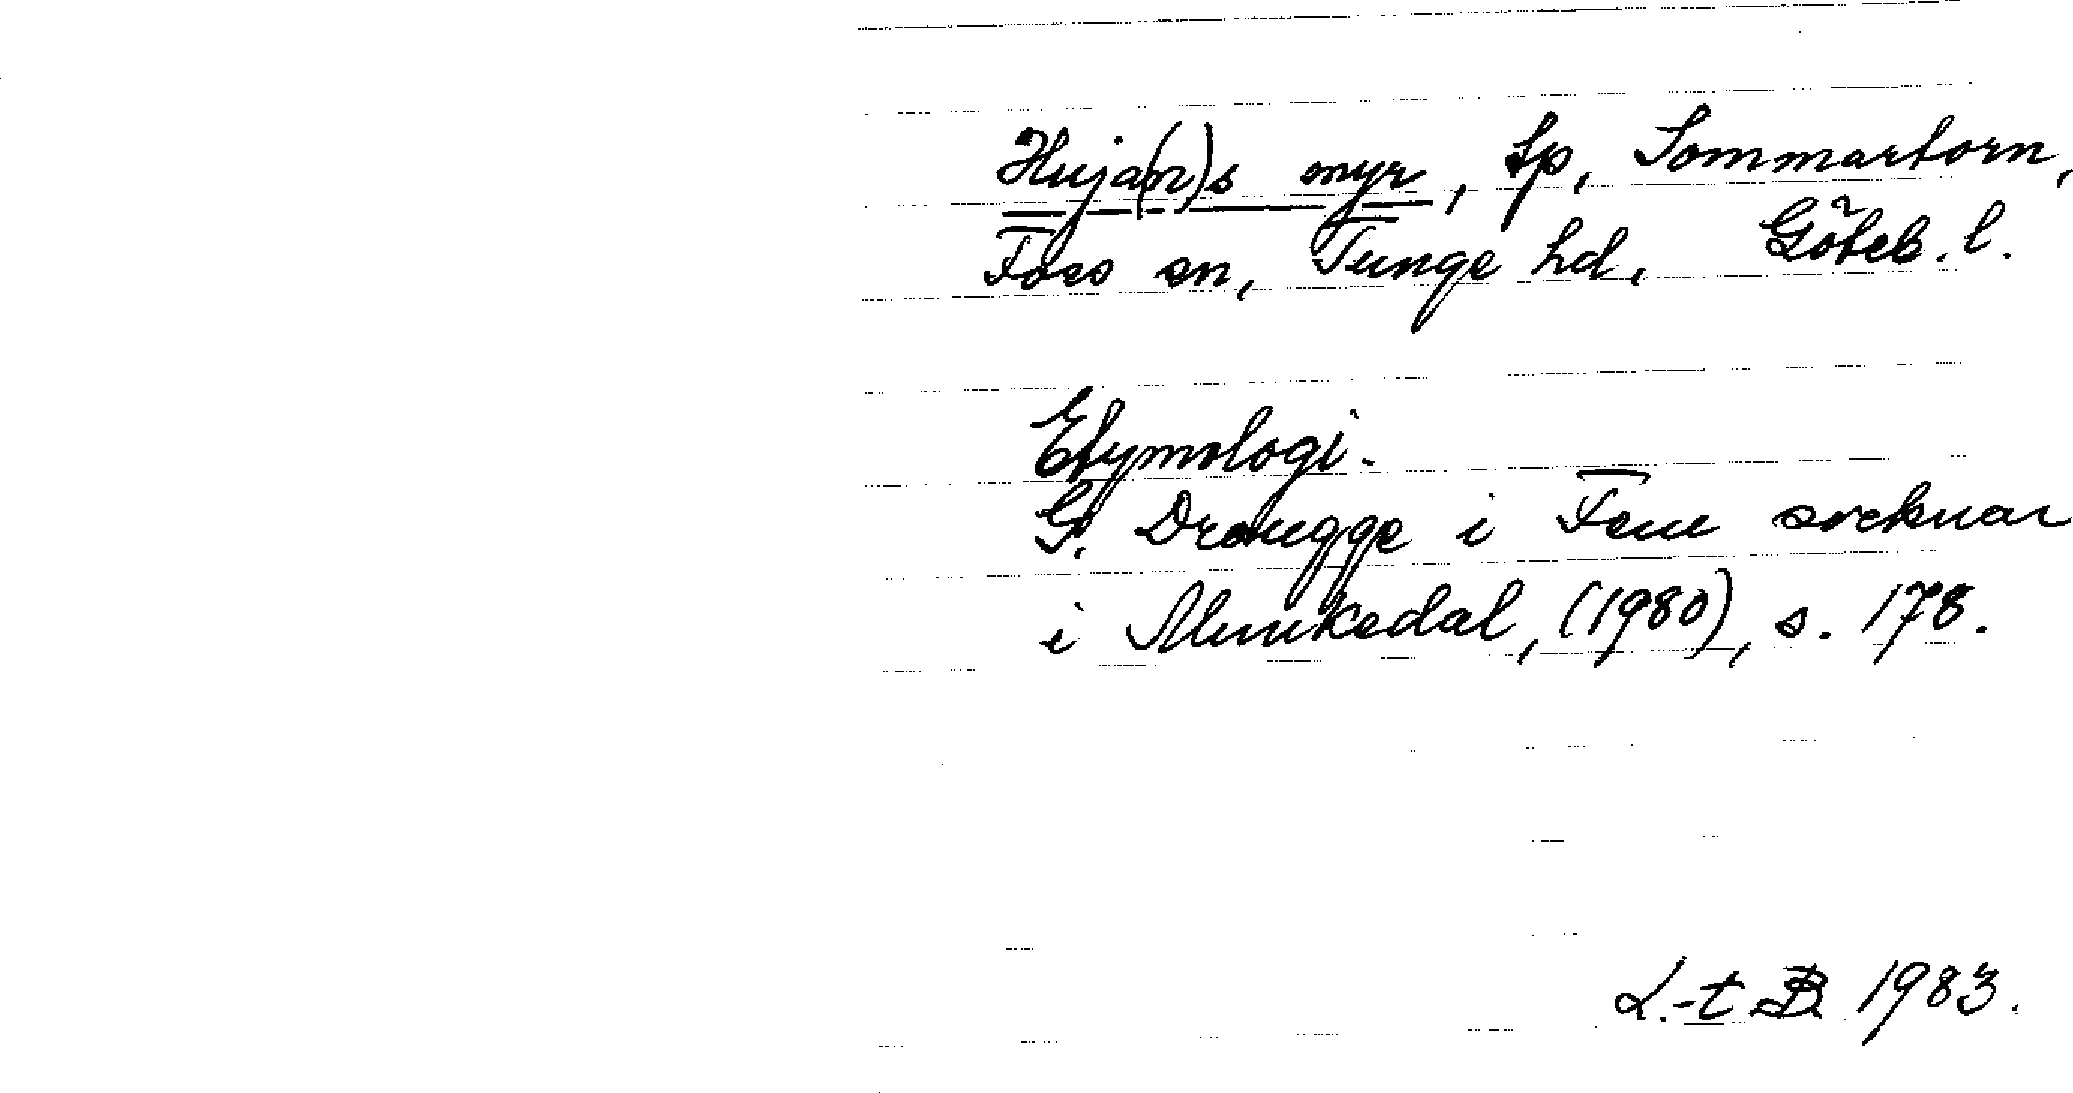 Huja(n)s myr, Lp, Sommartorn,
Foss sn, Tunge hd, Göteb. l.
Etymologi.
G. Drougge i Fem socknar
i Munkedal, (1980), s. 178.
L.-t B 1983.